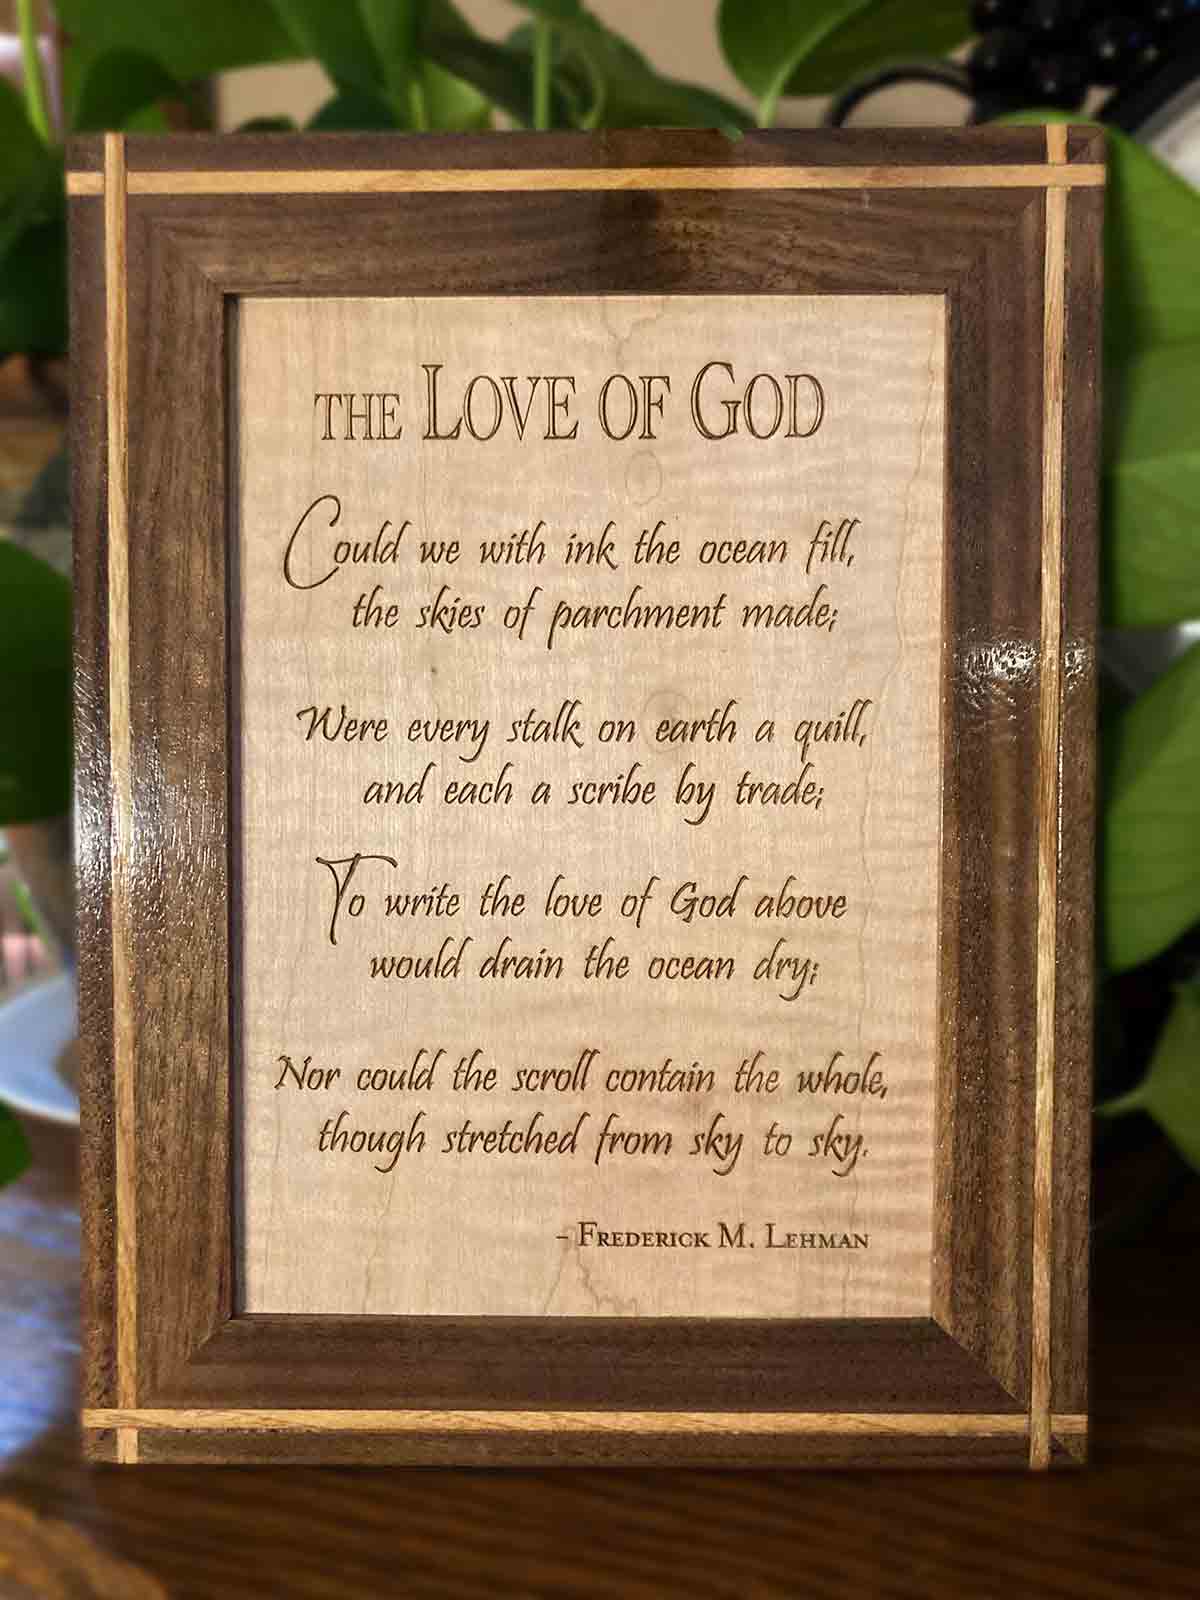 THE LOVE OF GOD
Could we with ink the ocean fill,
the skies of parchment made;
Were every stalk on earth a quill,
and each a scribe by trade;
To write the love of God above
would drain the ocean dry;
Nor could the scroll contain the whole,
though stretched from sky to sky.
- FREDERICK M. LEHMAN